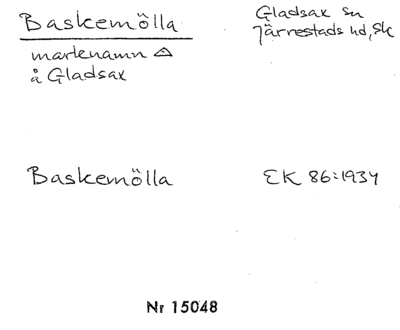 Baskemölla
Gladsax sn
Järrestads hd, Sk
markenamn
å Gladsax
Baskemölla
EK 86:1934
Nr 15048